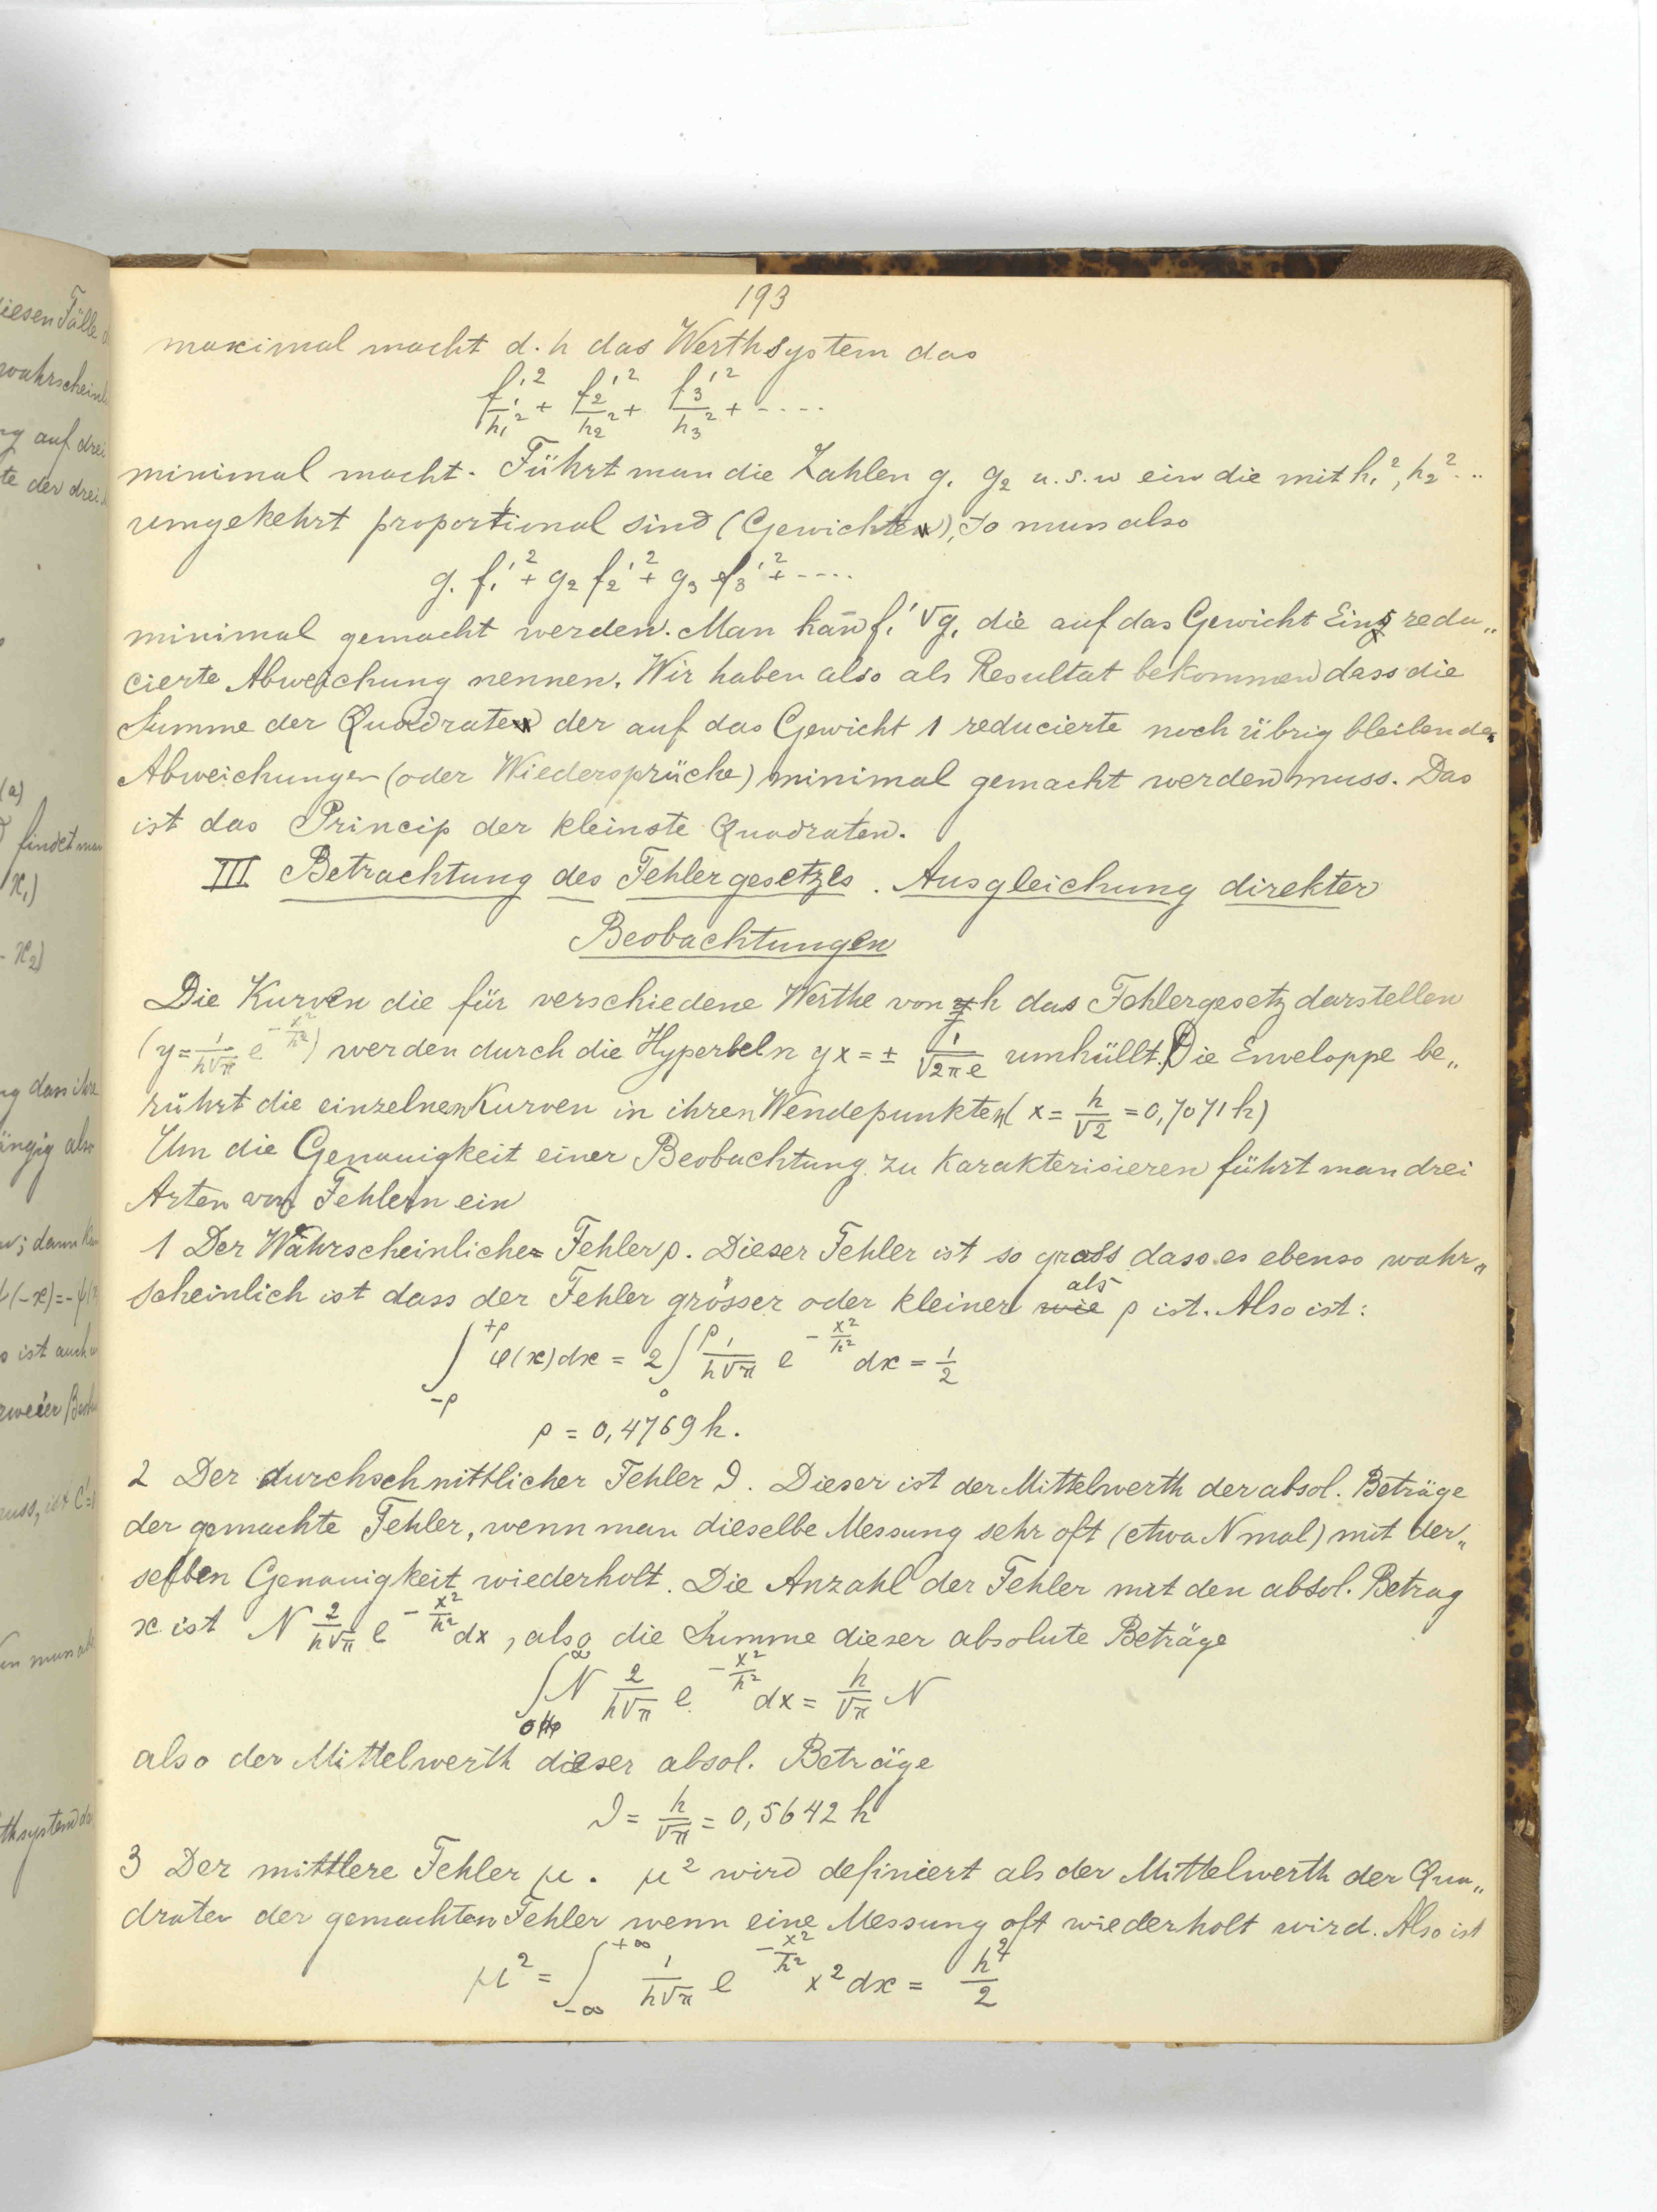 193
maximal macht d. h das Werthsystem das
f₁'²/h₁² + f₂'²/h₂² + f₃'²/h₃² + ----
minimal macht. Führt man die Zahlen g₁ g₂ u.s.w ein die mit h₁², h₂² ...
umgekehrt proportional sind (Gewichte), so muss also
g₁ f₁'² + g₂ f₂'² + g₃ f₃'² + ----
minimal gemacht werden. Man kan̄ f₁' √g₁ die auf das Gewicht Eins redu„
cierte Abweichung nennen. Wir haben also als Resultat bekommen dass die
Summe der Quadrate der auf das Gewicht 1 reducierte noch übrig bleibenden
Abweichungen (oder Wiedersprüche) minimal gemacht werden muss. Das
ist das Princip der kleinste Quadraten.
III Betrachtung des Fehlergesetzes. Ausgleichung direkter
Beobachtungen
Die Kurven die für verschiedene Werthe von h das Fehlergesetz darstellen
(y = 1/(h√π) e^(-x²/h²)) werden durch die Hyperbeln yx = ± 1/√(2πe) umhüllt. Die Enveloppe be„
rührt die einzelnen Kurven in ihren Wendepunkten (x = h/√2 = 0,7071 h)
Um die Genauigkeit einer Beobachtung zu Karakterisieren führt man drei
Arten von Fehlern ein
1 Der Wahrscheinliche Fehler ρ. Dieser Fehler ist so gross dass es ebenso wahr„
scheinlich ist dass der Fehler grösser oder kleiner wie als ρ ist. Also ist:
∫₋ρ^+ρ φ(x)dx = 2∫₀^ρ 1/(h√π) e^(-x²/h²) dx = 1/2
ρ = 0,4769 h.
2 Der durchschnittlicher Fehler ϑ. Dieser ist der Mittelwerth der absol. Beträge
der gemachte Fehler, wenn man dieselbe Messung sehr oft (etwa N mal) mit der„
selben Genauigkeit wiederholt. Die Anzahl der Fehler mit den absol. Betrag
x ist N 2/(h√π) e^(-x²/h²) dx, also die Summe dieser absolute Beträge
∫₀^∞ N 2/(h√π) e^(-x²/h²) dx = h/√π N
also der Mittelwerth dieser absol. Beträge
ϑ = h/√π = 0,5642 h
3 Der mittlere Fehler μ. μ² wird definiert als der Mittelwerth der Qua„
draten der gemachten Fehler wenn eine Messung oft wiederholt wird. Also ist
μ² = ∫₋∞^+∞ 1/(h√π) e^(-x²/h²) x² dx = h²/2